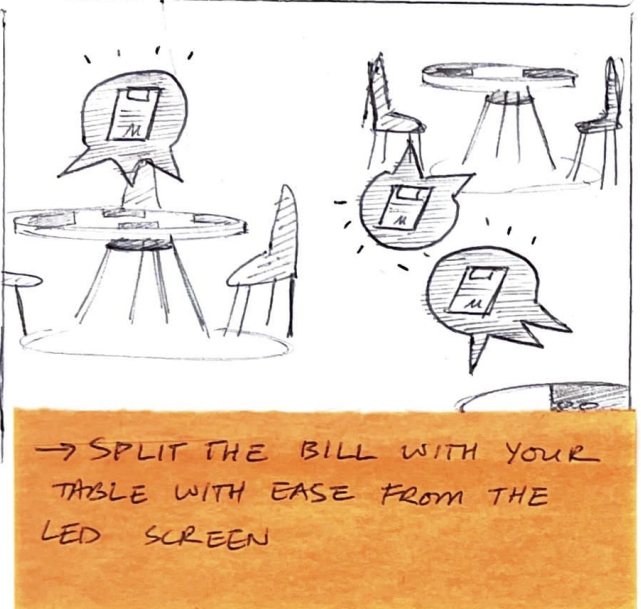 → SPLIT THE BILL WITH YOUR
TABLE WITH EASE FROM THE
LED SCREEN